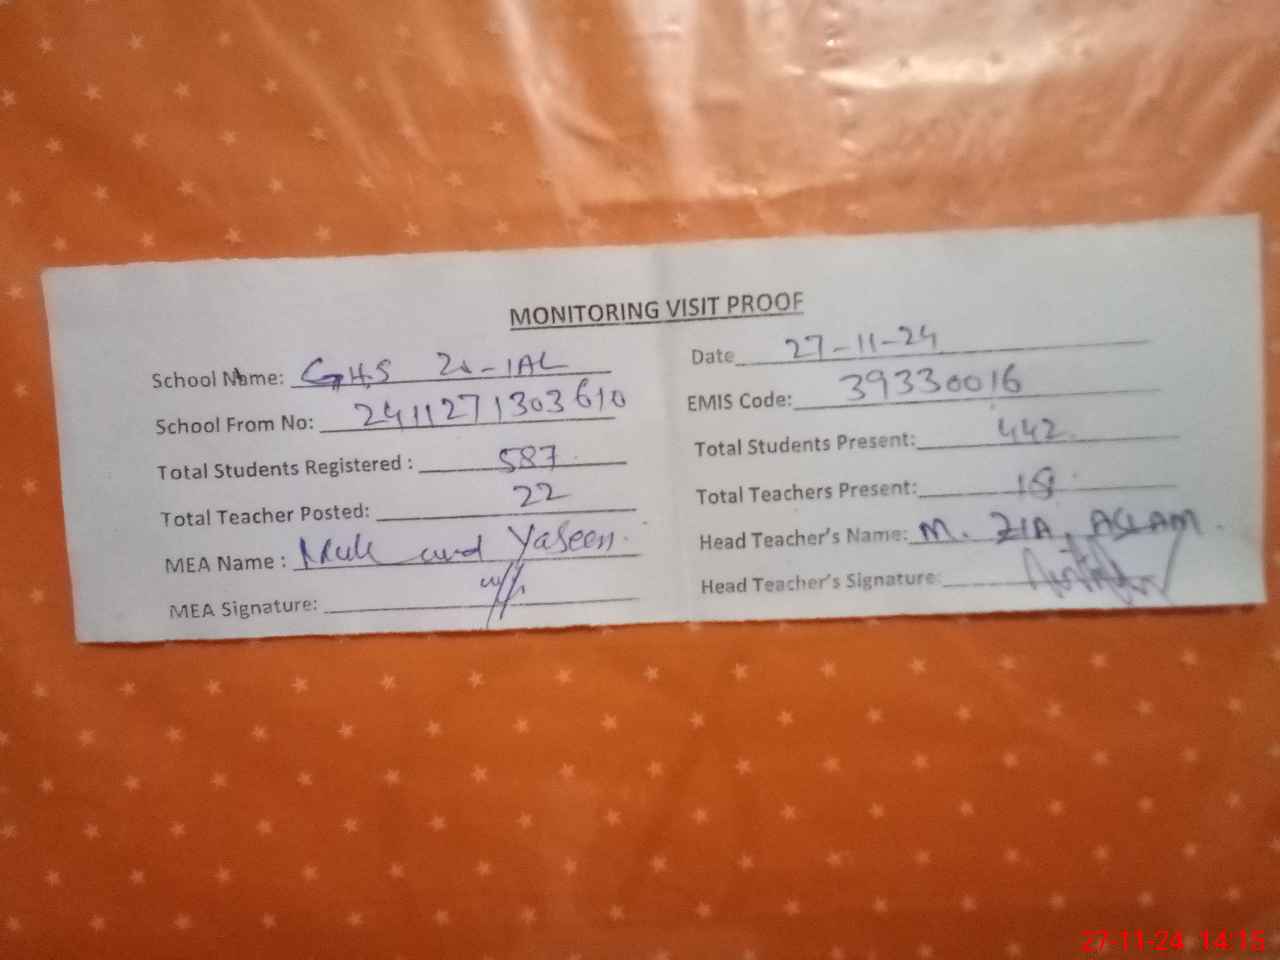 MONITORING VISIT PROOF
School Name: G.H.S 21-1AL
Date 27-11-24
School From No: 2411271303610
EMIS Code: 39330016
Total Students Registered : 587
Total Students Present: 442
Total Teacher Posted: 22
Total Teachers Present: 18
MEA Name : Yaseen
Head Teacher's Name: M. ZIA ASLAM
MEA Signature:
Head Teacher's Signature:
27-11-24 14:15